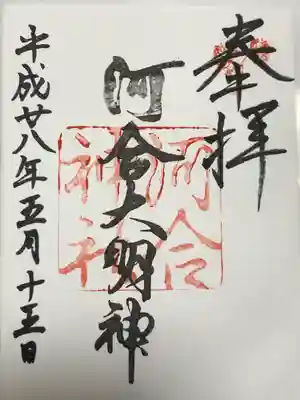 奉拝
河合大明神
河合神社
平成廿八年五月十五日